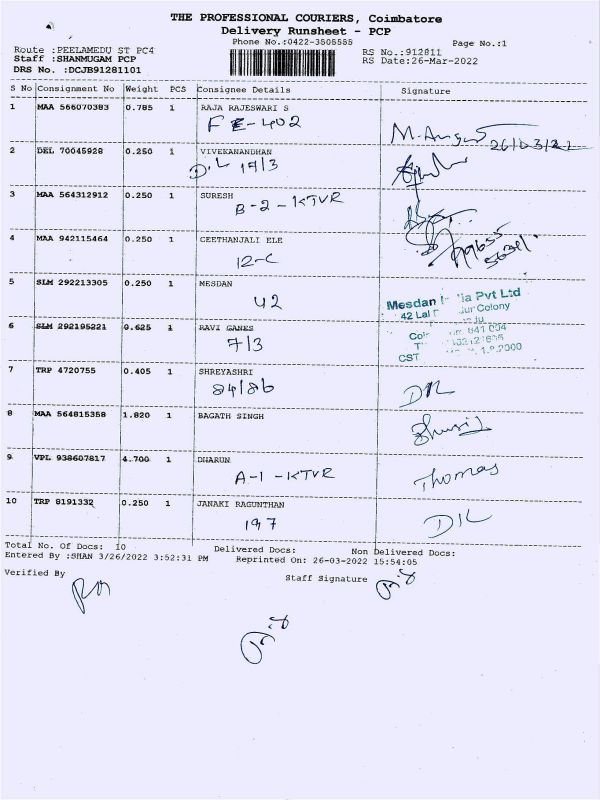 THE PROFESSIONAL COURIERS, Coimbatore
Delivery Runsheet - PCP
Phone No.:0422-3505555
Page No.:1
Route :PEELAMEDU ST PC4
RS No.:912811
Staff :SHANMUGAM PCP
RS Date:26-Mar-2022
DRS No. :DCJB91281101
S No Consignment No Weight PCS Consignee Details Signature
1 MAA 566070383 0.785 1 RAJA RAJESWARI S
FE-402
26/03/22
2 DEL 70045928 0.250 1 VIVEKANANDHAN
D.L 17/3
3 MAA 564312912 0.250 1 SURESH
B-2-KTVR
4 MAA 942115464 0.250 1 CEETHANJALI ELE
12-C
5 SLM 292213305 0.250 1 MESDAN
42
Mesdan Pvt Ltd
42 Lal Colony
6 SLM 292195221 0.625 1 RAVI GANES
7/3
CST
7 TRP 4720755 0.405 1 SHREYASHRI
84/86
DR
8 MAA 564815358 1.820 1 BAGATH SINGH
9 VPL 938607817 4.700 1 DHARUN
A-1-KTVR
Thomas
10 TRP 8191332 0.250 1 JANAKI RAGUNTHAN
197
DR
Total No. Of Docs: 10 Delivered Docs: Non Delivered Docs:
Entered By :SHAN 3/26/2022 3:52:31 PM Reprinted On: 26-03-2022 15:54:05
Verified By Staff Signature